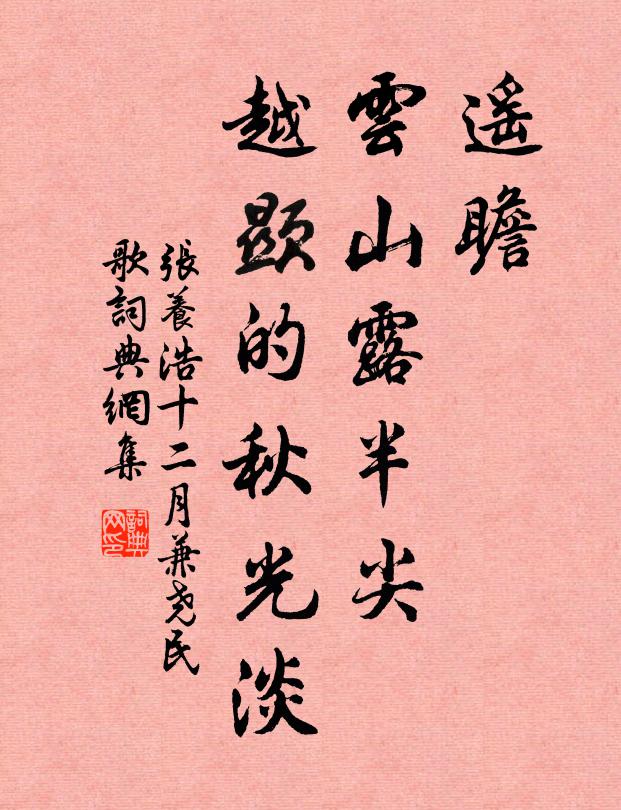 遥瞻
雲山露半尖
越顯的秋光淡
張養浩十二月兼尧民
歌詞典網集
詞典
网印